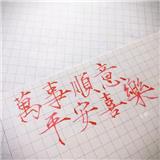 萬事順意
平安喜樂